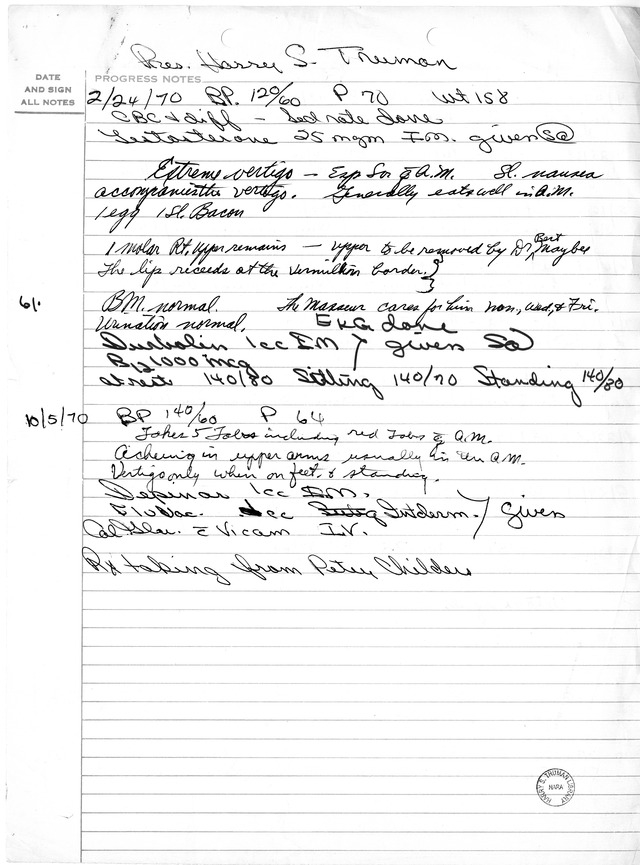 Pres. Harry S. Truman
DATE
AND SIGN
ALL NOTES
PROGRESS NOTES
2/24/70 BP. 120/60 P 70 wt 158
CBC & diff - Sed rate done
Testosterone 25 mgm I.M. given Sa
Extreme vertigo - Esp Sn c̄ A.M. Sl. nausea
accompanies the vertigo. Generally eats well in A.M.
1 egg 1 Sl. Bacon
1 molar Rt. upper remains - upper to be removed by Dr. Bert Maybee
The lip recedes at the Vermillion border.
61.
BM. normal. The Masseur cares for him Mon., Wed., & Fri.
Urination normal. EKG done
Durabolin 1cc IM } given Sa
B12 1000 mcg
140/80 Sitting 140/70 Standing 140/80
10/5/70 BP 140/60 P 64
Takes 5 Tabs including red Tabs c̄ A.M.
Acheing in upper arms usually in the A.M.
Vertigo only when on feet. & standing.
Depinar 1cc I.M.
Flu Vac. 1cc Intderm. } given
Cal Glu. c̄ Vicam I.V.
Rx taking from Petey Childers
HARRY S. TRUMAN LIBRARY
NARA